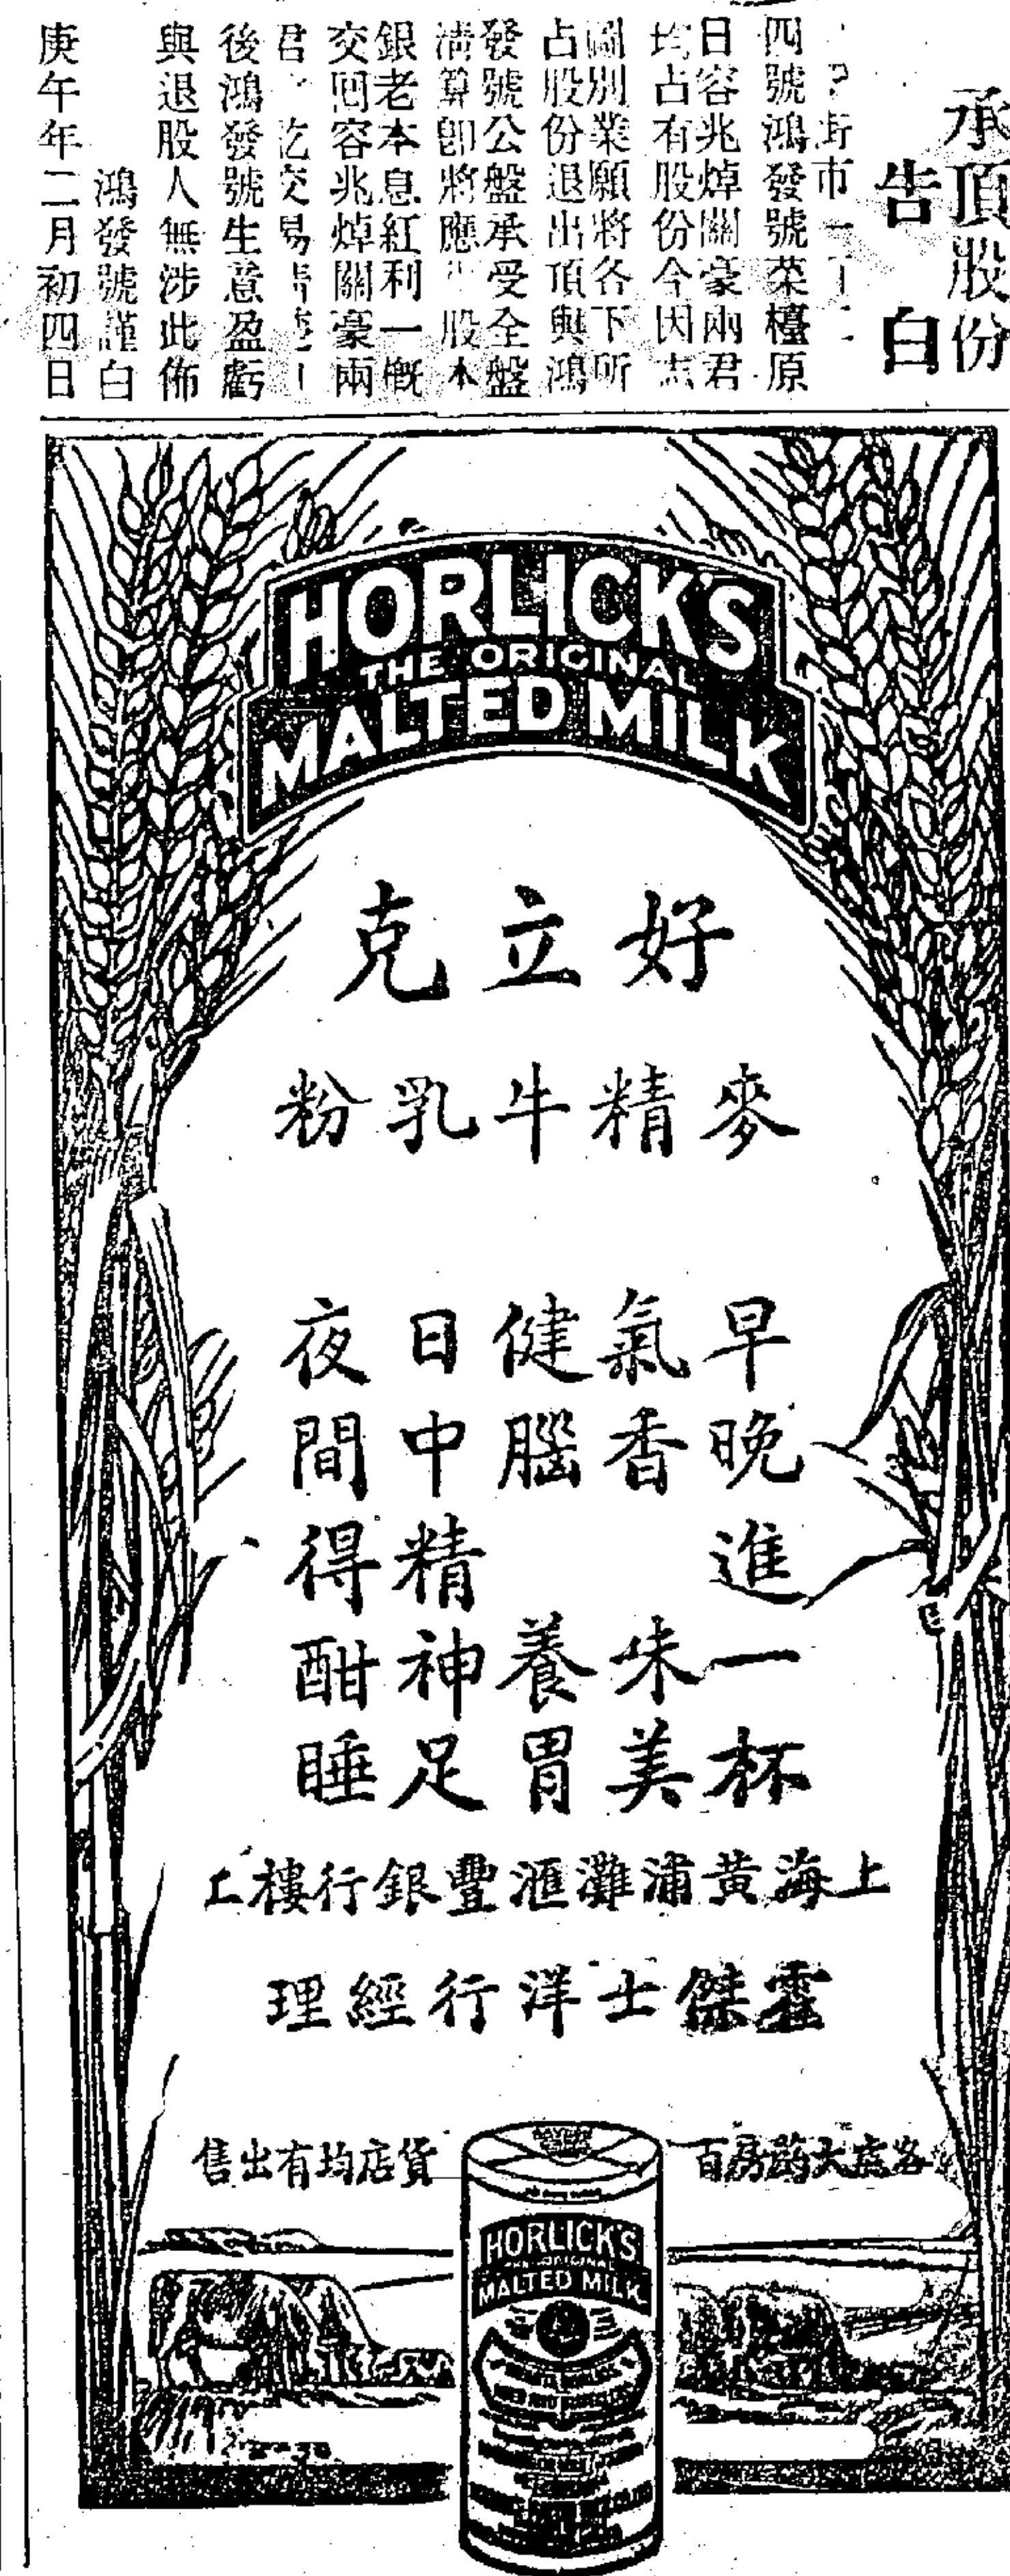 承頂股份
告白
街市一
四號鴻發號菜欄原
日容兆焯關豪兩君
均占有股份今因志
圖別業願將各下所
占股份退出頂與鴻
發號公盤承受全盤
清算卽將應 股本
銀老本息紅利一概
交囘容兆焯關豪兩
君 訖交易清楚
後鴻發號生意盈虧
與退股人無涉此佈
鴻發號謹白
庚午年二月初四日
HORLICK'S
THE ORIGINAL
MALTED MILK
好立克
麥精牛乳粉
早晚進一杯
氣香 味美
健腦 養胃
日中精神足
夜間得酣睡
上海黃浦灘滙豐銀行樓上
霍傑士洋行經理
各處大葯房百
貨店均有出售
HORLICK'S
THE ORIGINAL
MALTED MILK